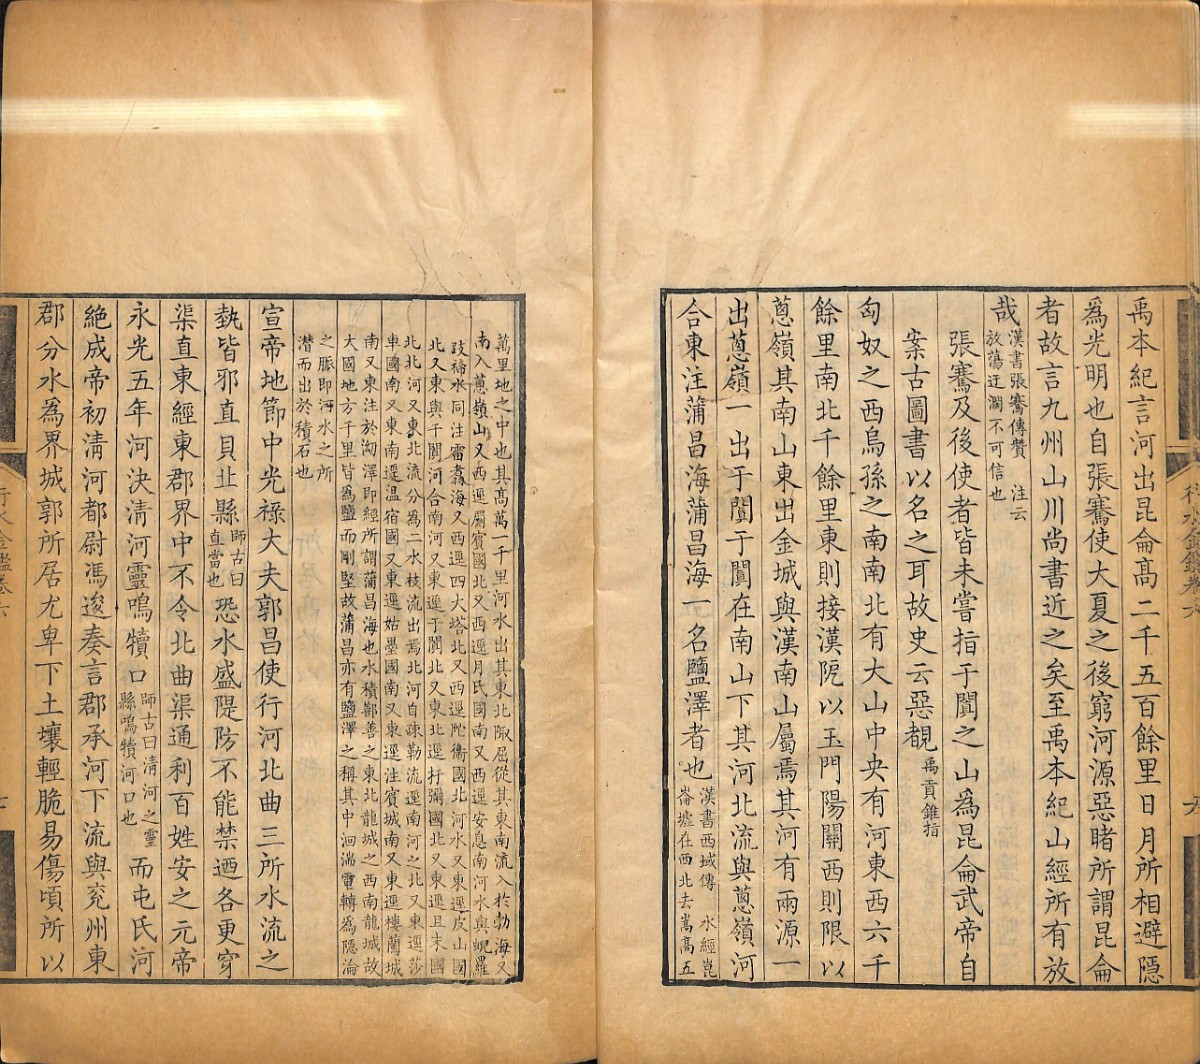 禹本紀言河出昆侖髙二千五百餘里日月所相避隱
爲光明也自張騫使大夏之後窮河源惡睹所謂昆侖
者故言九州山川尚書近之矣至禹本紀山經所有放
哉漢書張騫傳贊 注云放蕩迂濶不可信也
張騫及後使者皆未嘗指于闐之山爲昆侖武帝自
案古圖書以名之耳故史云惡覩禹貢錐指
匈奴之西烏孫之南南北有大山中央有河東西六千
餘里南北千餘里東則接漢阸以玉門陽關西則限以
蔥嶺其南山東出金城與漢南山屬焉其河有兩源一
出蔥嶺一出于闐于闐在南山下其河北流與蔥嶺河
合東注蒲昌海蒲昌海一名鹽澤者也漢書西域傳 水經崑崙墟在西北去嵩髙五
萬里地之中也其髙萬一千里河水出其東北陬屈從其東南流入於勃海又
南入蔥嶺山又西逕罽賓國北又西逕月氏國南又西逕安息南河水與蜺羅
跂禘水同注雷翥海又西逕四大塔北又西逕陀衞國北河水又東逕皮山國
北又東與于闐河合南河又東逕于闐北又東北逕扜彌國北又東逕且末國
北北河又東北流分爲二水枝流出焉北河自疎勒流逕南河之北又東逕莎
車國南又東南逕温宿國又東逕姑墨國南又東逕注賓城南又東逕樓蘭城
南又東注於泑澤即經所謂蒲昌海也水積鄯善之東北龍城之西南龍城故
大國地方千里皆爲鹽而剛堅故蒲昌亦有鹽澤之稱其中洄湍電轉爲隱淪
之脈即河水之所
潛而出於積石也
宣帝地節中光禄大夫郭昌使行河北曲三所水流之
埶皆邪直貝丘縣師古曰直當也恐水盛隄防不能禁迺各更穿
渠直東經東郡界中不令北曲渠通利百姓安之元帝
永光五年河決清河靈鳴犢口師古曰清河之靈縣鳴犢河口也而屯氏河
絶成帝初清河都尉馮逡奏言郡承河下流與兖州東
郡分水爲界城郭所居尤卑下土壤輕脆易傷頃所以